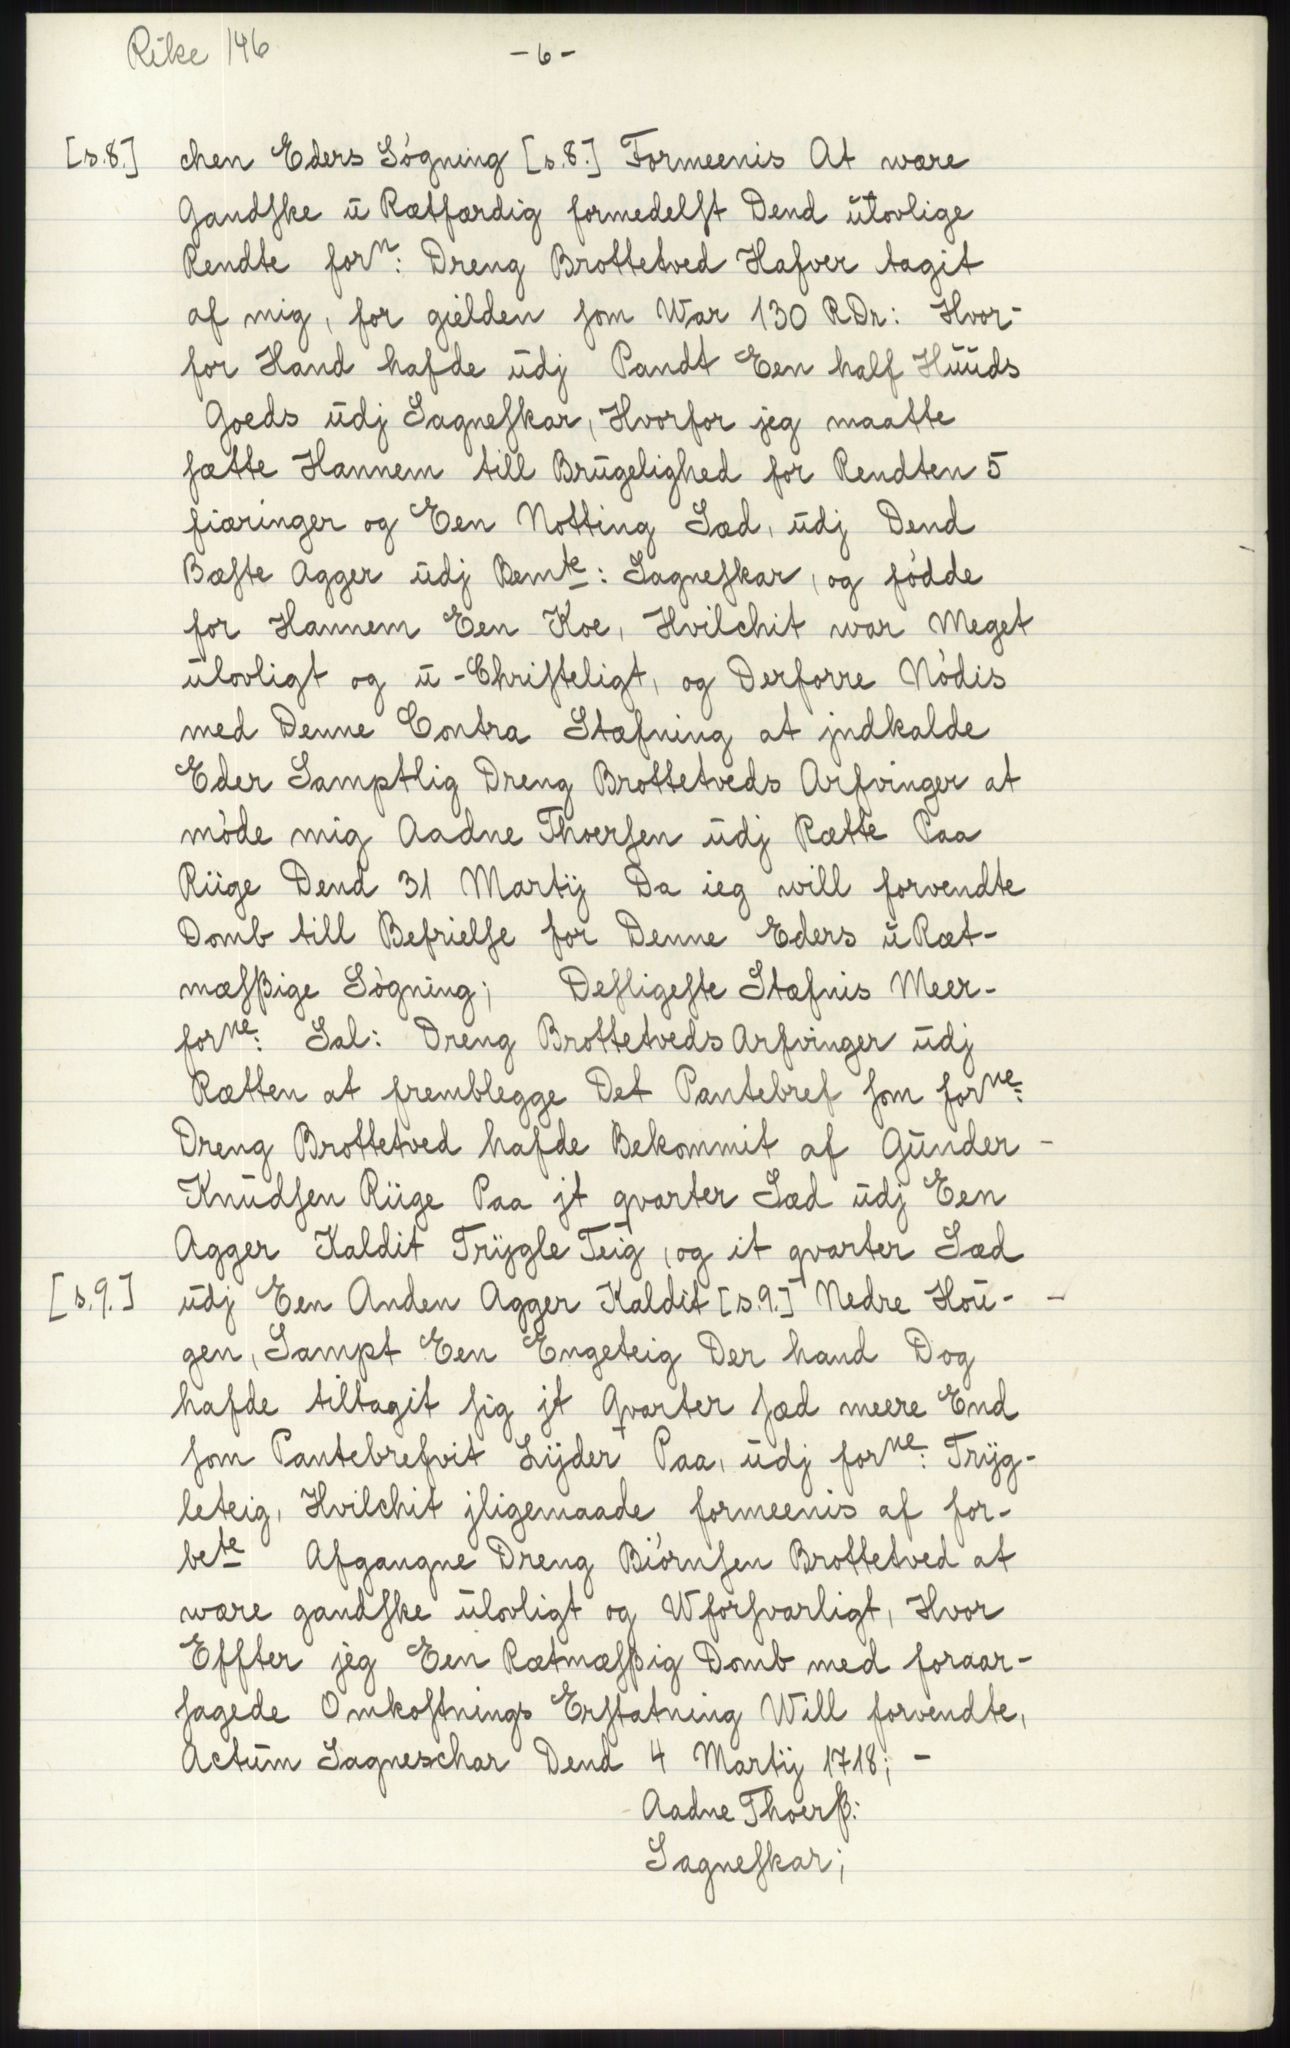 Rike 146
- 6 -
[s.8.] chen Eders Søgning [s.8.] Formeenis At være
Gandſke ū Rætfærdig formedelſt Dend ūlovlige
Rendte forⁿ: Dreng Brottetved Hafver tagit
af mig, for gielden ſom War 130 RDr: Hvor-
for Hand hafde ūdj Pandt Een half Hūūds
Goeds ūdj Sagneſkar, Hvorfor jeg maatte
ſætte Hannem till Brūgelighed for Rendten 5
fiæringer og Een Notting Sæd, ūdj Dend
Bæſte Agger ūdj Bemᵗᵉ: Sagneſkar, og fødde
for Hannem Een Koe, Hvilchit war Meget
ūlovligt og ū-Chriſteligt, og Derforre Nødis
med Denne Contra Stæfning at jndkalde
Eder Samptlig Dreng Brottetveds Arfvinger at
møde mig Aadne Thoerſen ūdj Rætte Paa
Riige Dend 31 Martij Da ieg will forvendte
Domb till Befrielſe for Denne Eders ūRæt-
mæſßige Søgning; Desligeſte Stæfnis Meer-
forⁿᵉ: Sal: Dreng Brottetveds Arfvinger ūdj
Rætten at fremblegge Det Pantebref ſom forⁿᵉ:
Dreng Brottetved hafde Bekommit af Gūnder -
Knūdſen Riige Paa jt qvarter Sæd ūdj Een
Agger Kaldit Trÿgle Teig, og it qvarter Sæd
[s.9.] ūdj Een Anden Agger Kaldit [s.9.] Nedre Hoū- -
gen, Sampt Een Engeteig Der hand Dog
hafde tiltagit ſig jt Qvarter ſæd meere End
ſom Pantebrefvit Lÿder Paa, ūdj forⁿᵉ: Trÿg-
leteig, Hvilchit jligemaade formeenis af for-
beᵗᵉ Afgangne Dreng Biørnſen Brottetved at
være gandſke ūlovligt og Wforſvarligt, Hvor
Effter jeg Een Rætmæſßig Domb med foraar-
ſagede Omkoſtnings Erſtatning Will forvendte,
Actūm Sagneschar Dend 4 Martij 1718; -
Aadne Thoerß:
Sagneſkar;